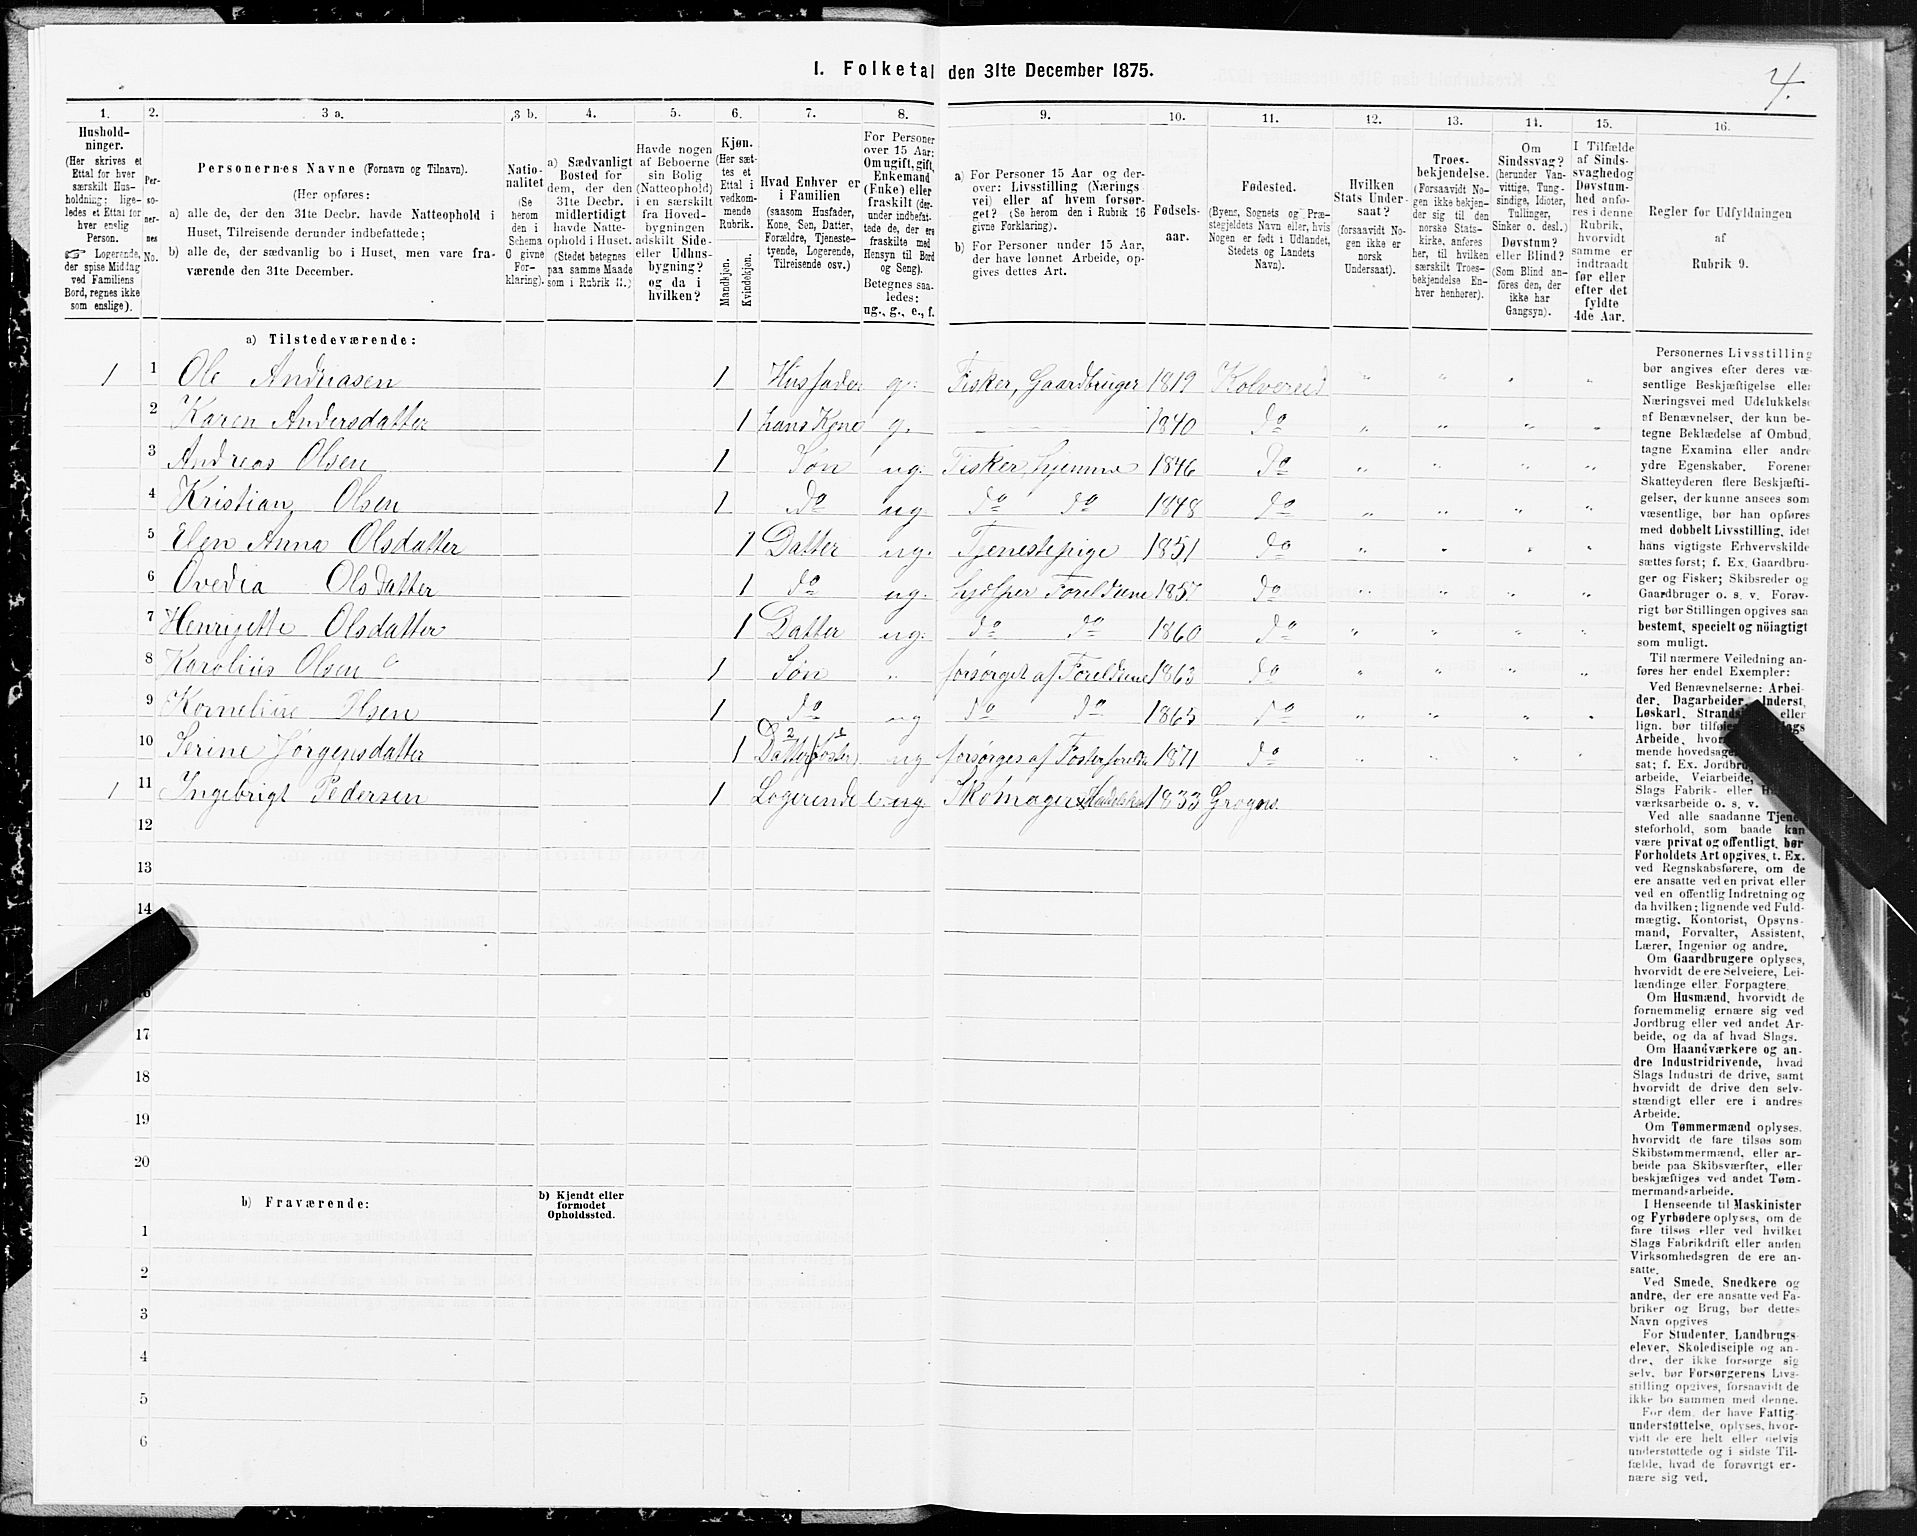 I. Folketal den 31te December 1875.
4.
1. 2. 3 a. 3 b. 4. 5. 6. 7. 8. 9. 10. 11. 12. 13. 14. 15. 16.
Hushold-
ninger.
(Her skrives et
Ettal for hver
særskilt Hus-
holdning; lige-
ledes et Ettal for
hver enslig
Person.
☞ Logerende,
der spise Middag
ved Familiens
Bord, regnes ikke
som enslige).
Per-
so-
ner-
nes
No.
Personernes Navne (Fornavn og Tilnavn).
(Her opføres:
a) alle de, der den 31te Decbr. havde Natteophold i
Huset, Tilreisende derunder indbefattede;
b) alle de, der sædvanlig bo i Huset, men vare fra-
værende den 31te December.
Natio-
nalitet
(Se
herom
den i
Schema
6 givne
For-
klaring).
a) Sædvanligt
Bosted for
dem, der den
31te Decbr.
midlertidigt
havde Natte-
ophold i Huset.
(Stedet betegnes
paa samme Maade
som i Rubrik 11.)
Havde nogen
af Beboerne
sin Bolig
(Natteophold)
i en særskilt
fra Hoved-
bygningen
adskilt Side-
eller Udhus-
bygning?
og da i
hvilken?
Kjøn.
(Her sæt-
tes et
Ettal i
vedkom-
mende
Rubrik.
Mandkjøn.
Kvindekjøn.
Hvad Enhver er
i Familien
(saasom Husfader,
Kone, Søn, Datter,
Forældre, Tjeneste-
tyende, Logerende,
Tilreisende osv.)
For Personer
over 15 Aar:
Om ugift, gift,
Enkemand
(Enke) eller
fraskilt (der-
under indbefat-
tede de, der ere
fraskilte med
Hensyn til Bord
og Seng).
Betegnes saa-
ledes:
ug., g., e., f.
a) For Personer 15 Aar og der-
over: Livsstilling (Nærings-
vei) eller af hvem forsør-
get? (Se herom den i Rubrik 16
givne Forklaring).
b) For Personer under 15 Aar,
der have lønnet Arbeide, op-
gives dettes Art.
Fødsels-
aar.
Fødested.
(Byens, Sognets og Præ-
stegjeldets Navn eller, hvis
Nogen er født i Udlandet,
Stedets og Landets
Navn).
Hvilken
Stats Under-
saat?
(forsaavidt No-
gen ikke er
norsk
Undersaat).
Troes-
bekjendelse.
(Forsaavidt No-
gen ikke bekjen-
der sig til den
norske Stats-
kirke, anføres
her, til hvilken
særskilt Troes-
bekjendelse En-
hver henhører).
Om
Sindssvag?
(herunder Van-
vittige, Tung-
sindige, Idioter,
Tullinger,
Sinker o. desl.)
Døvstum?
eller Blind?
(Som Blind an-
føres den, der
ikke har
Gangsyn).
I Tilfælde
af Sinds-
svaghed og
Døvstum-
hed anfø-
res i denne
Rubrik,
hvorvidt
samme er
indtraadt
før eller
efter det
fyldte
4de Aar.
Regler for Udfyldningen
af
Rubrik 9.
a) Tilstedeværende:
1 1 Ole Andreasen 1 Husfader g. Fisker, Gaardbruger 1819 Kolvereid " " " "
2 Karen Andersdatter 1 hans Kone g. 1840 do " " " "
3 Andreas Olsen 1 Søn ug. Fisker, hjemme 1846 Do " " " "
4 Kristian Olsen 1 do ug. do do 1848 do " " " "
5 Elen Anna Olsdatter 1 Datter ug. Tjenestepige 1851 do " " " "
6 Ovedia Olsdatter 1 do ug. hjelper Foreldrene 1857 do " " " "
7 Henrigette Olsdatter 1 Datter ug. do do 1860 do " " " "
8 Karolius Olsen 1 Søn " forsørget af Foreldrene 1863 do " " " "
9 Kornelius Olsen 1 do ug do do 1865 do " " " "
10 Serine Jørgensdatter 1 Datter (Foster) ug forsørges af Fosterforeldre 1871 do " " " "
1 11 Ingebrigt Pedersen 1 Logerende ug Skomager 1833
12
13
14
16
17
18
19
20
b) Fraværende:
b) Kjendt eller
formodet
Opholdssted.
1
2
3
4
5
6
Personernes Livsstilling
bør angives efter deres væ-
sentlige Beskjæftigelse eller
Næringsvei med Udelukkelse
af Benævnelser, der kun be-
tegne Beklædelse af Ombud,
tagne Examina eller andre
ydre Egenskaber. Forener
Skatteyderen flere Beskjæfti-
gelser, der kunne ansees som
væsentlige, bør han opføres
med dobbelt Livsstilling, idet
hans vigtigste Erhvervskilde
sættes først; f. Ex. Gaardbru-
ger og Fisker; Skibsreder og
Gaardbruger o. s. v. Forøv-
rigt bør Stillingen opgives saa
bestemt, specielt og nöiagtigt
som muligt.
Til nærmere Veiledning an-
føres her endel Exempler:
Ved Benævnelserne: Arbei-
der, Dagarbeider, Inderst,
Løskarl, eller
lign. bør
Arbeide,
mende
sat; f. Ex.
arbeide, Veiarbeide,
Slags Fabrik- eller
værksarbeide o. s. v.
Ved alle saadanne Tjene-
steforhold, som baade kan
være privat og offentligt, bør
Forholdets Art opgives, t. Ex.
ved Regnskabsførere, om de
ere ansatte ved en privat eller
ved en offentlig Indretning og
da hvilken; lignende ved Fuld-
mægtig, Kontorist, Opsyns-
mand, Forvalter, Assistent,
Lærer, Ingeniør og andre.
Om Gaardbrugere oplyses,
hvorvidt de ere Selveiere, Lei-
lændinge eller Forpagtere.
Om Husmænd, hvorvidt de
fornemmelig ernære sig ved
Jordbrug eller ved andet Ar-
beide, og da af hvad Slags.
Om Haandværkere og an-
dre Industridrivende, hvad
Slags Industri de drive, samt
hvorvidt de drive den selv-
stændigt eller ere i andres
Arbeide.
Om Tømmermænd oplyses,
hvorvidt de fare tilsøs som
Skibstømmermænd, eller ar-
beide paa Skibsværfter, eller
beskjæftiges ved andet Tøm-
mermandsarbeide.
I Henseende til Maskinister
og Fyrbødere oplyses, om de
fare tilsøs eller ved hvilket
Slags Fabrikdrift eller anden
Virksomhedsgren de ere an-
satte.
Ved Smede, Snedkere og
andre, der ere ansatte ved Fa-
briker og Brug, bør dettes
Navn opgives
For Studenter, Landbrugs-
elever, Skoledisciple og an-
dre, der ikke forsørge sig
selv, bør Forsørgerens Livs-
stilling opgives, forsaavidt de
ikke bo sammen med denne.
For dem, der have Fattig-
understøttelse, oplyses, hvor-
vidt de ere helt eller delvis
understøttede og i sidste Til-
fælde, hvad de forøvrigt er-
nære sig ved.